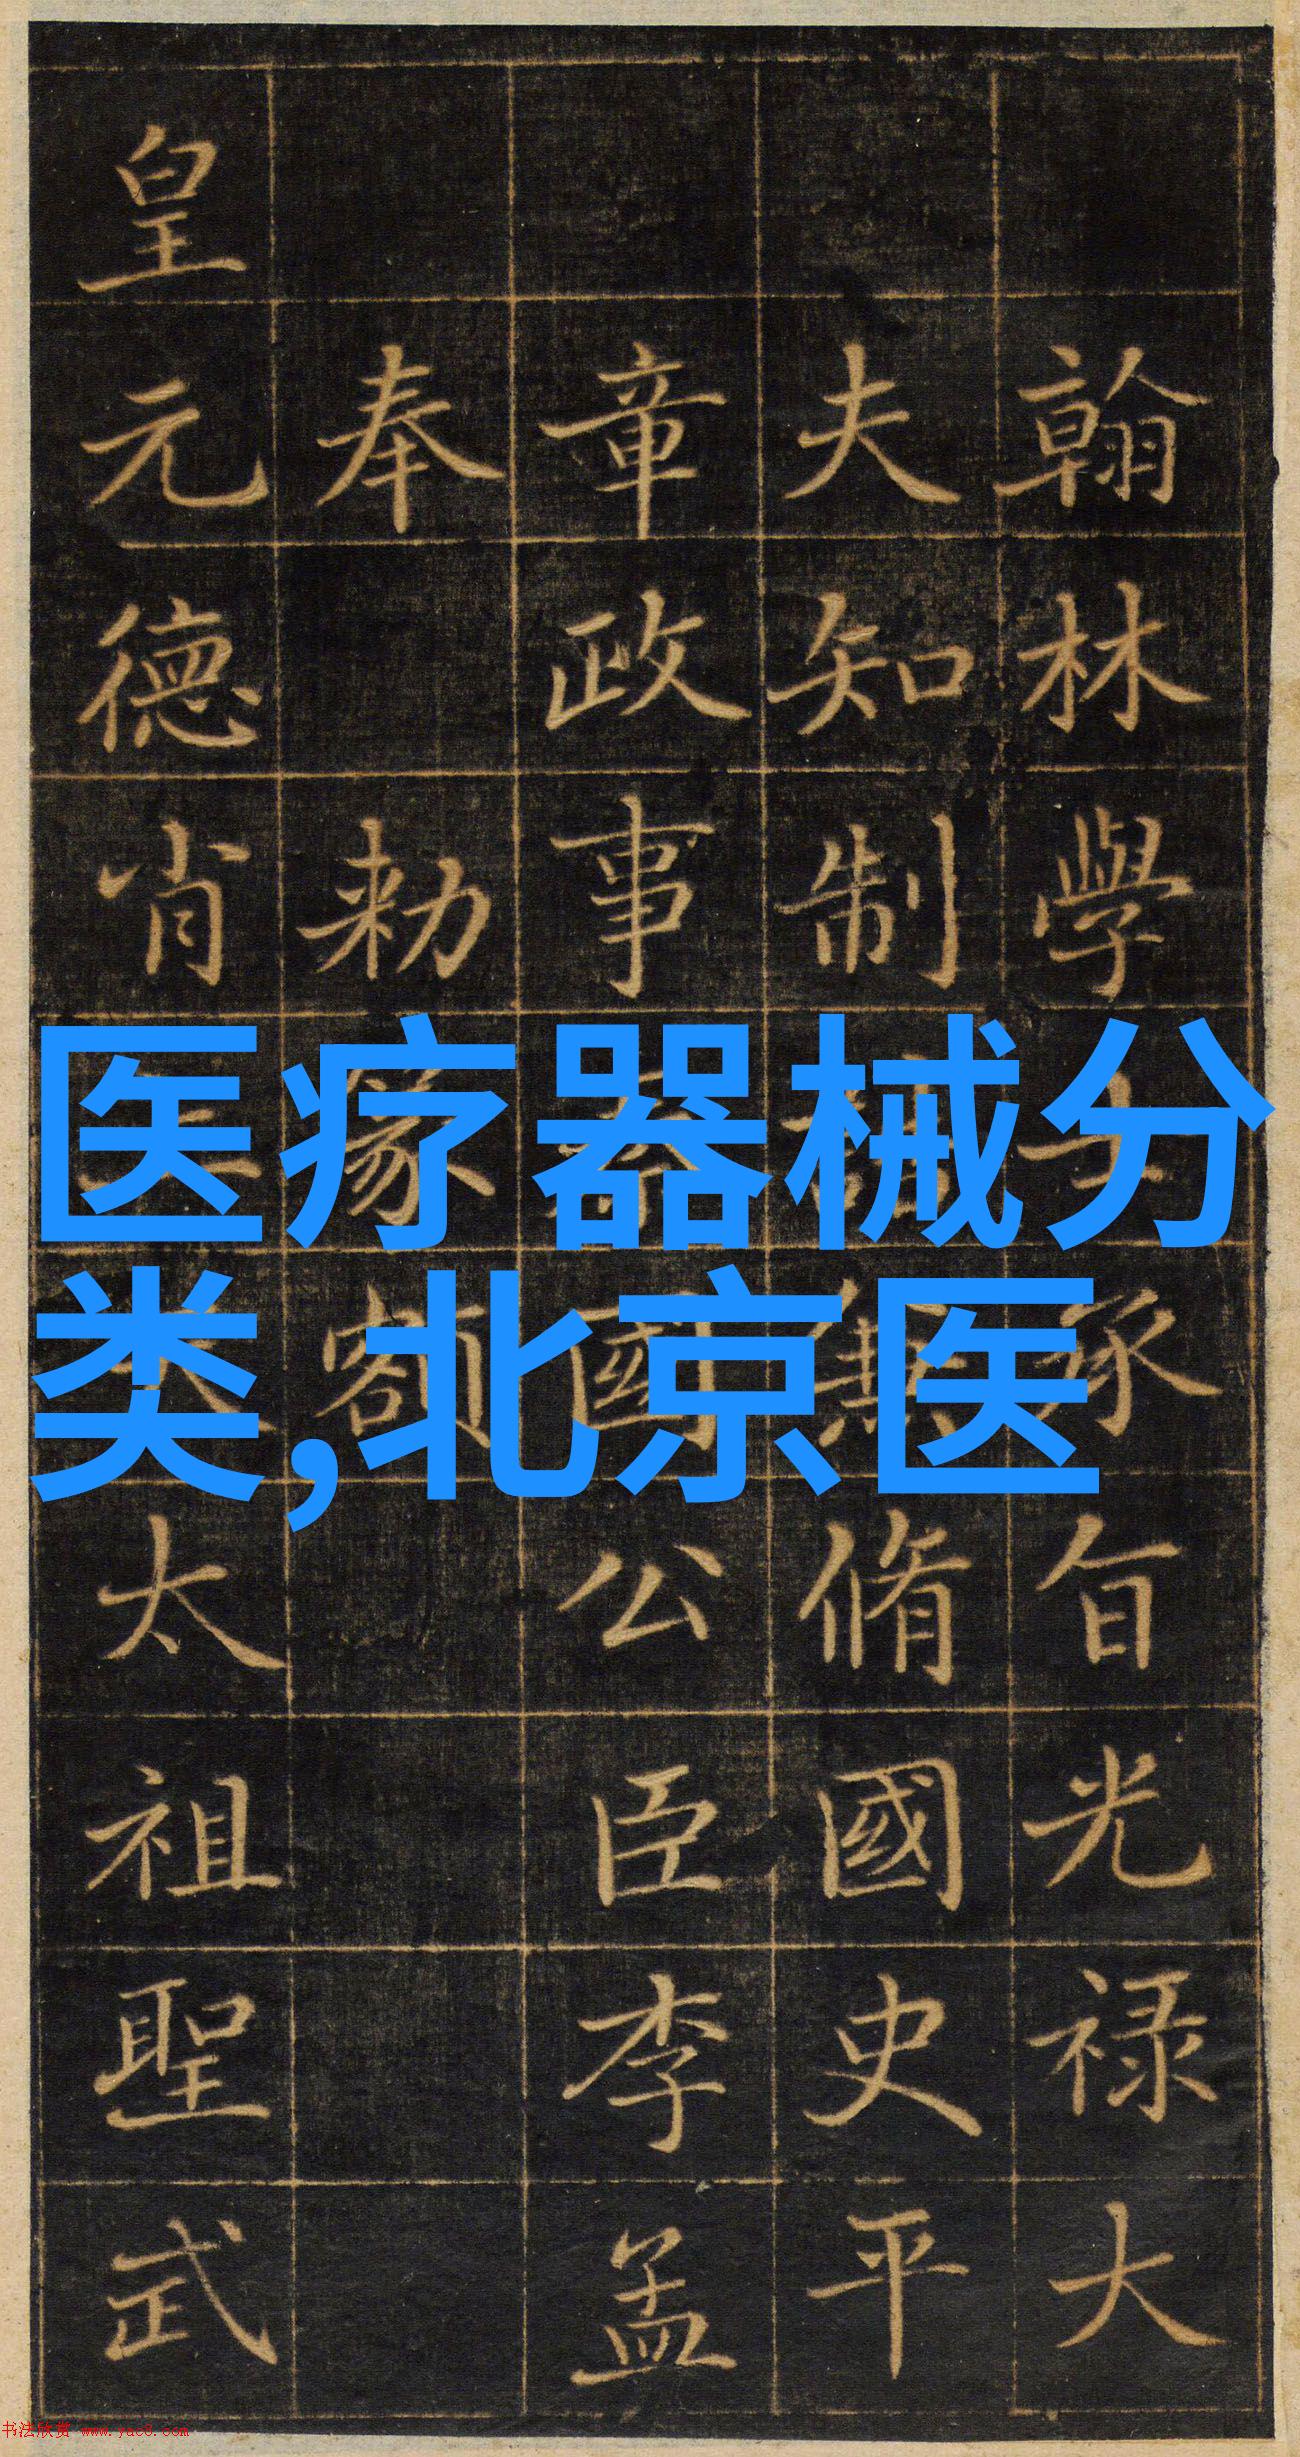 翰林學士承旨光禄大
夫知制誥兼脩國史平
章政事國公臣李孟
奉勑篆額
皇元德肖太祖聖武
医疗器械分
类,北京医
书法欣赏 www.yac8.com